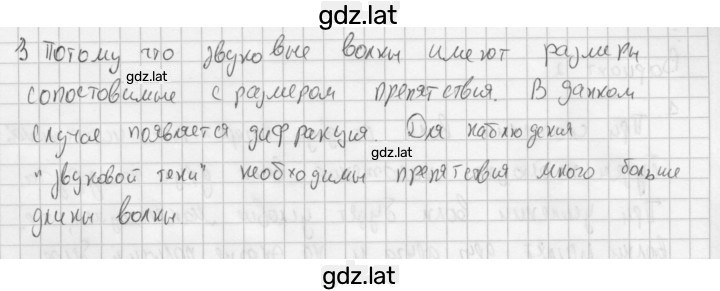 gdz.lat
3 Потому что звуковые волны имеют размеры
gdz.lat
сопоставимые с размером препятствия. В данном
случае появляется дифракция. Для наблюдения
gdz.lat
"звуковой тени" необходимы препятствия много больше
длины волны
gdz.lat